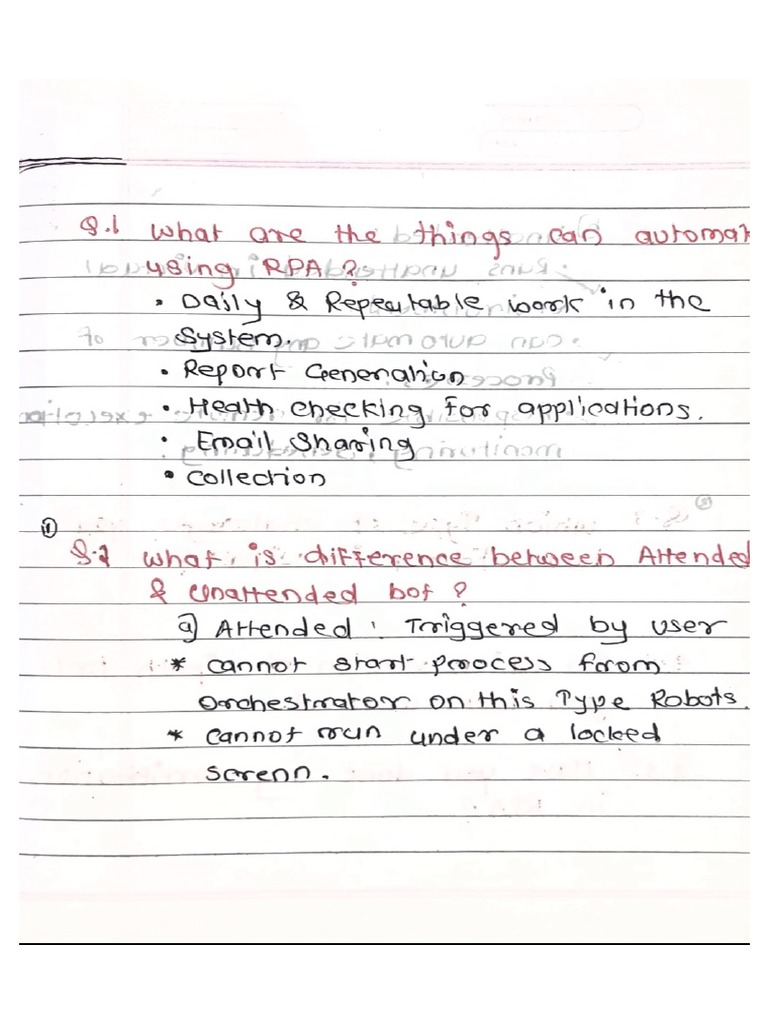 Q.1 What are the things can automat
using RPA ?
• Daily & Repeatable work in the
System.
• Report Generation
• Health checking for applications.
• Email Sharing
• Collection
①
Q.2 What is difference between Attended
& Unattended bot ?
a) Attended : Triggered by user
* cannot start process from
Orchestrator on this Type Robots.
* cannot run under a locked
screnn.